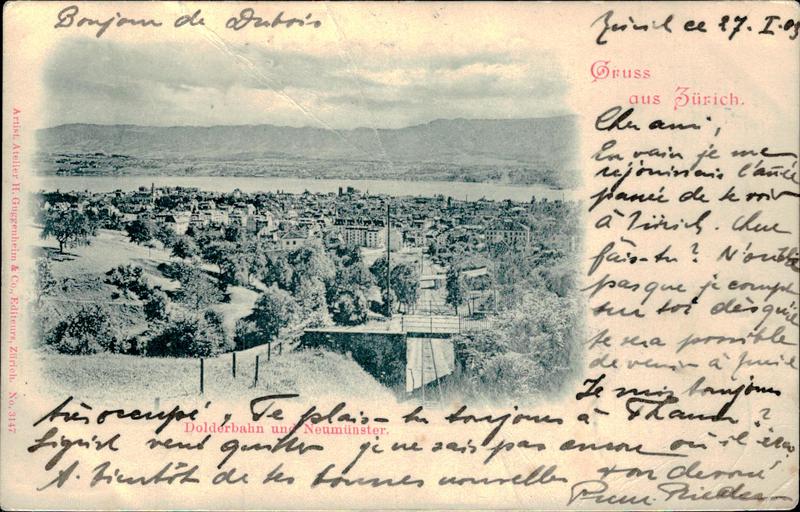 Bonjour de Dubois
Zürich ce 27. I. 03
Gruss
aus Zürich.
Cher ami,
En vain je me
réjouissais l'année
passée de te voir
à Zürich. Que
fais-tu? N'oublie
pas que je compte
sur toi dès qu'il
te sera possible
de venir à Zurich
Je suis toujours
très occupé. Te plais-tu toujours à Thann?
veut quitter je ne sais pas encore où il ira
A bientôt de tes bonnes nouvelles ton dévoué
Dolderbahn und Neumünster.
Artist. Atelier H. Guggenheim & Co., Editeurs, Zürich. No. 3147